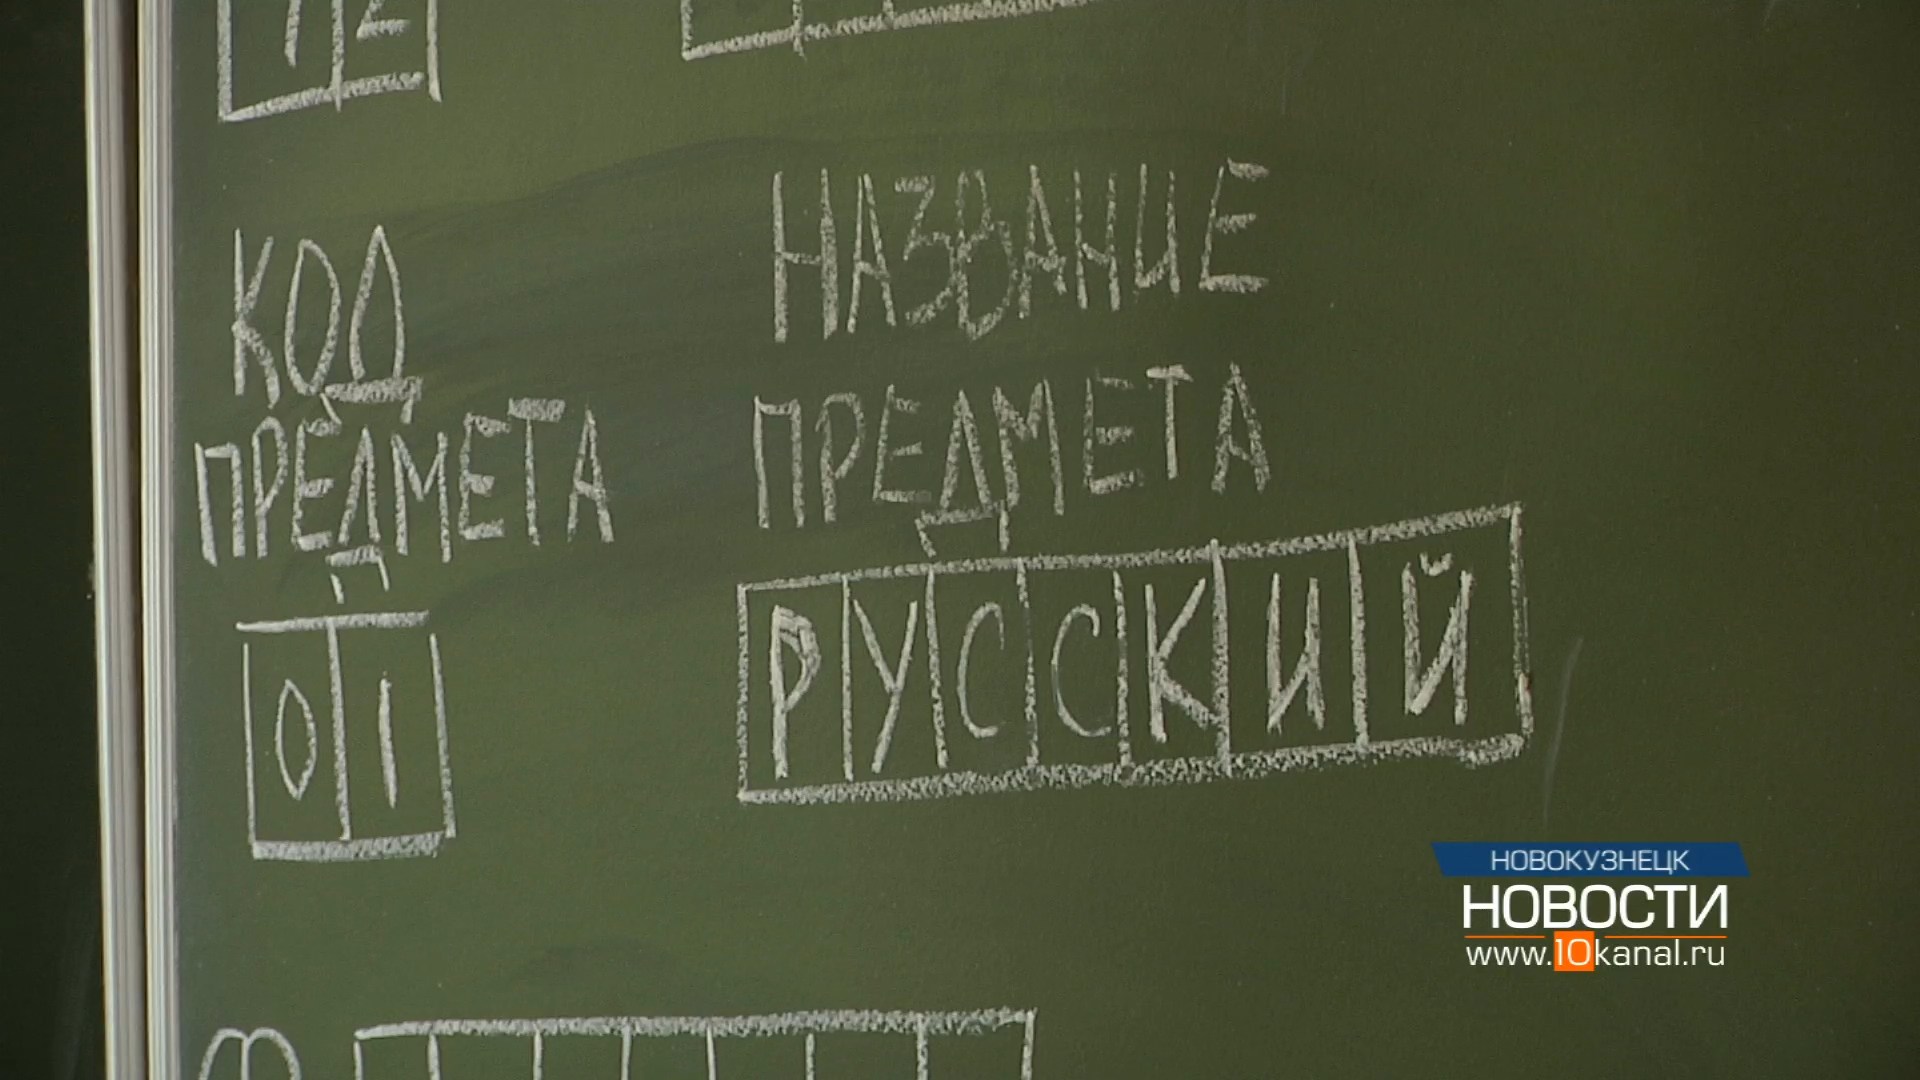 КОД
ПРЕДМЕТА
01
НАЗВАНИЕ
ПРЕДМЕТА
РУССКИЙ
НОВОКУЗНЕЦК
НОВОСТИ
www.10kanal.ru